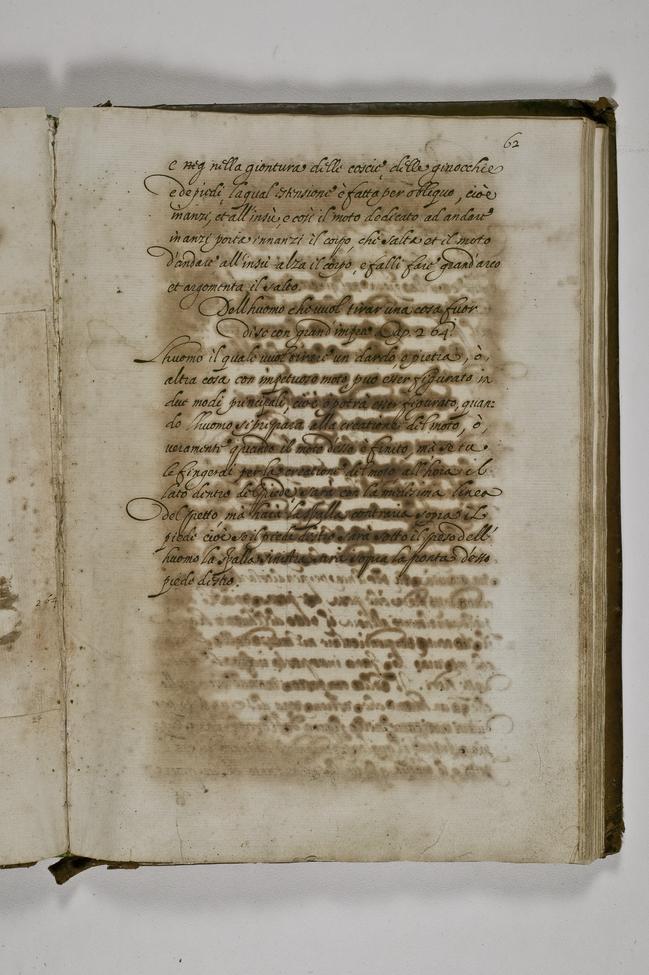 62
e neg nella giontura delle coscie, delle ginocchie
e de piedi, la qual estensione è fatta per obliquo, cioè
inanzi, et all'insù, e cosi il moto dedicato ad andare
inanzi porta innanzi il corpo, che salta et il moto
d'andare all'insù alza il corpo, e falli fare grand'arco
et argomenta il salto.
Dell huomo che vuol tirar una cosa fuor
di se con grand impeto Cap. 264.
L huomo il quale vuol tirare un dardo, o pietra, ò,
altra cosa con impetuoso moto, può esser figurato in
due modi principali, cioè o potrà esser figurato, quan:
do l huomo si prepara alla creatione del moto, ò,
veramente quando il moto desso è finito, ma se tu
le fingerai per la creatione del moto all'hora il
lato dentro del piede sarà con la medesima linea
del petto, ma harà la spalla contraria sopra il
piede cioè se il piede destro sarà sotto il peso dell'
huomo la spalla sinistra sarà sopra la ponta desso
piede destro
264